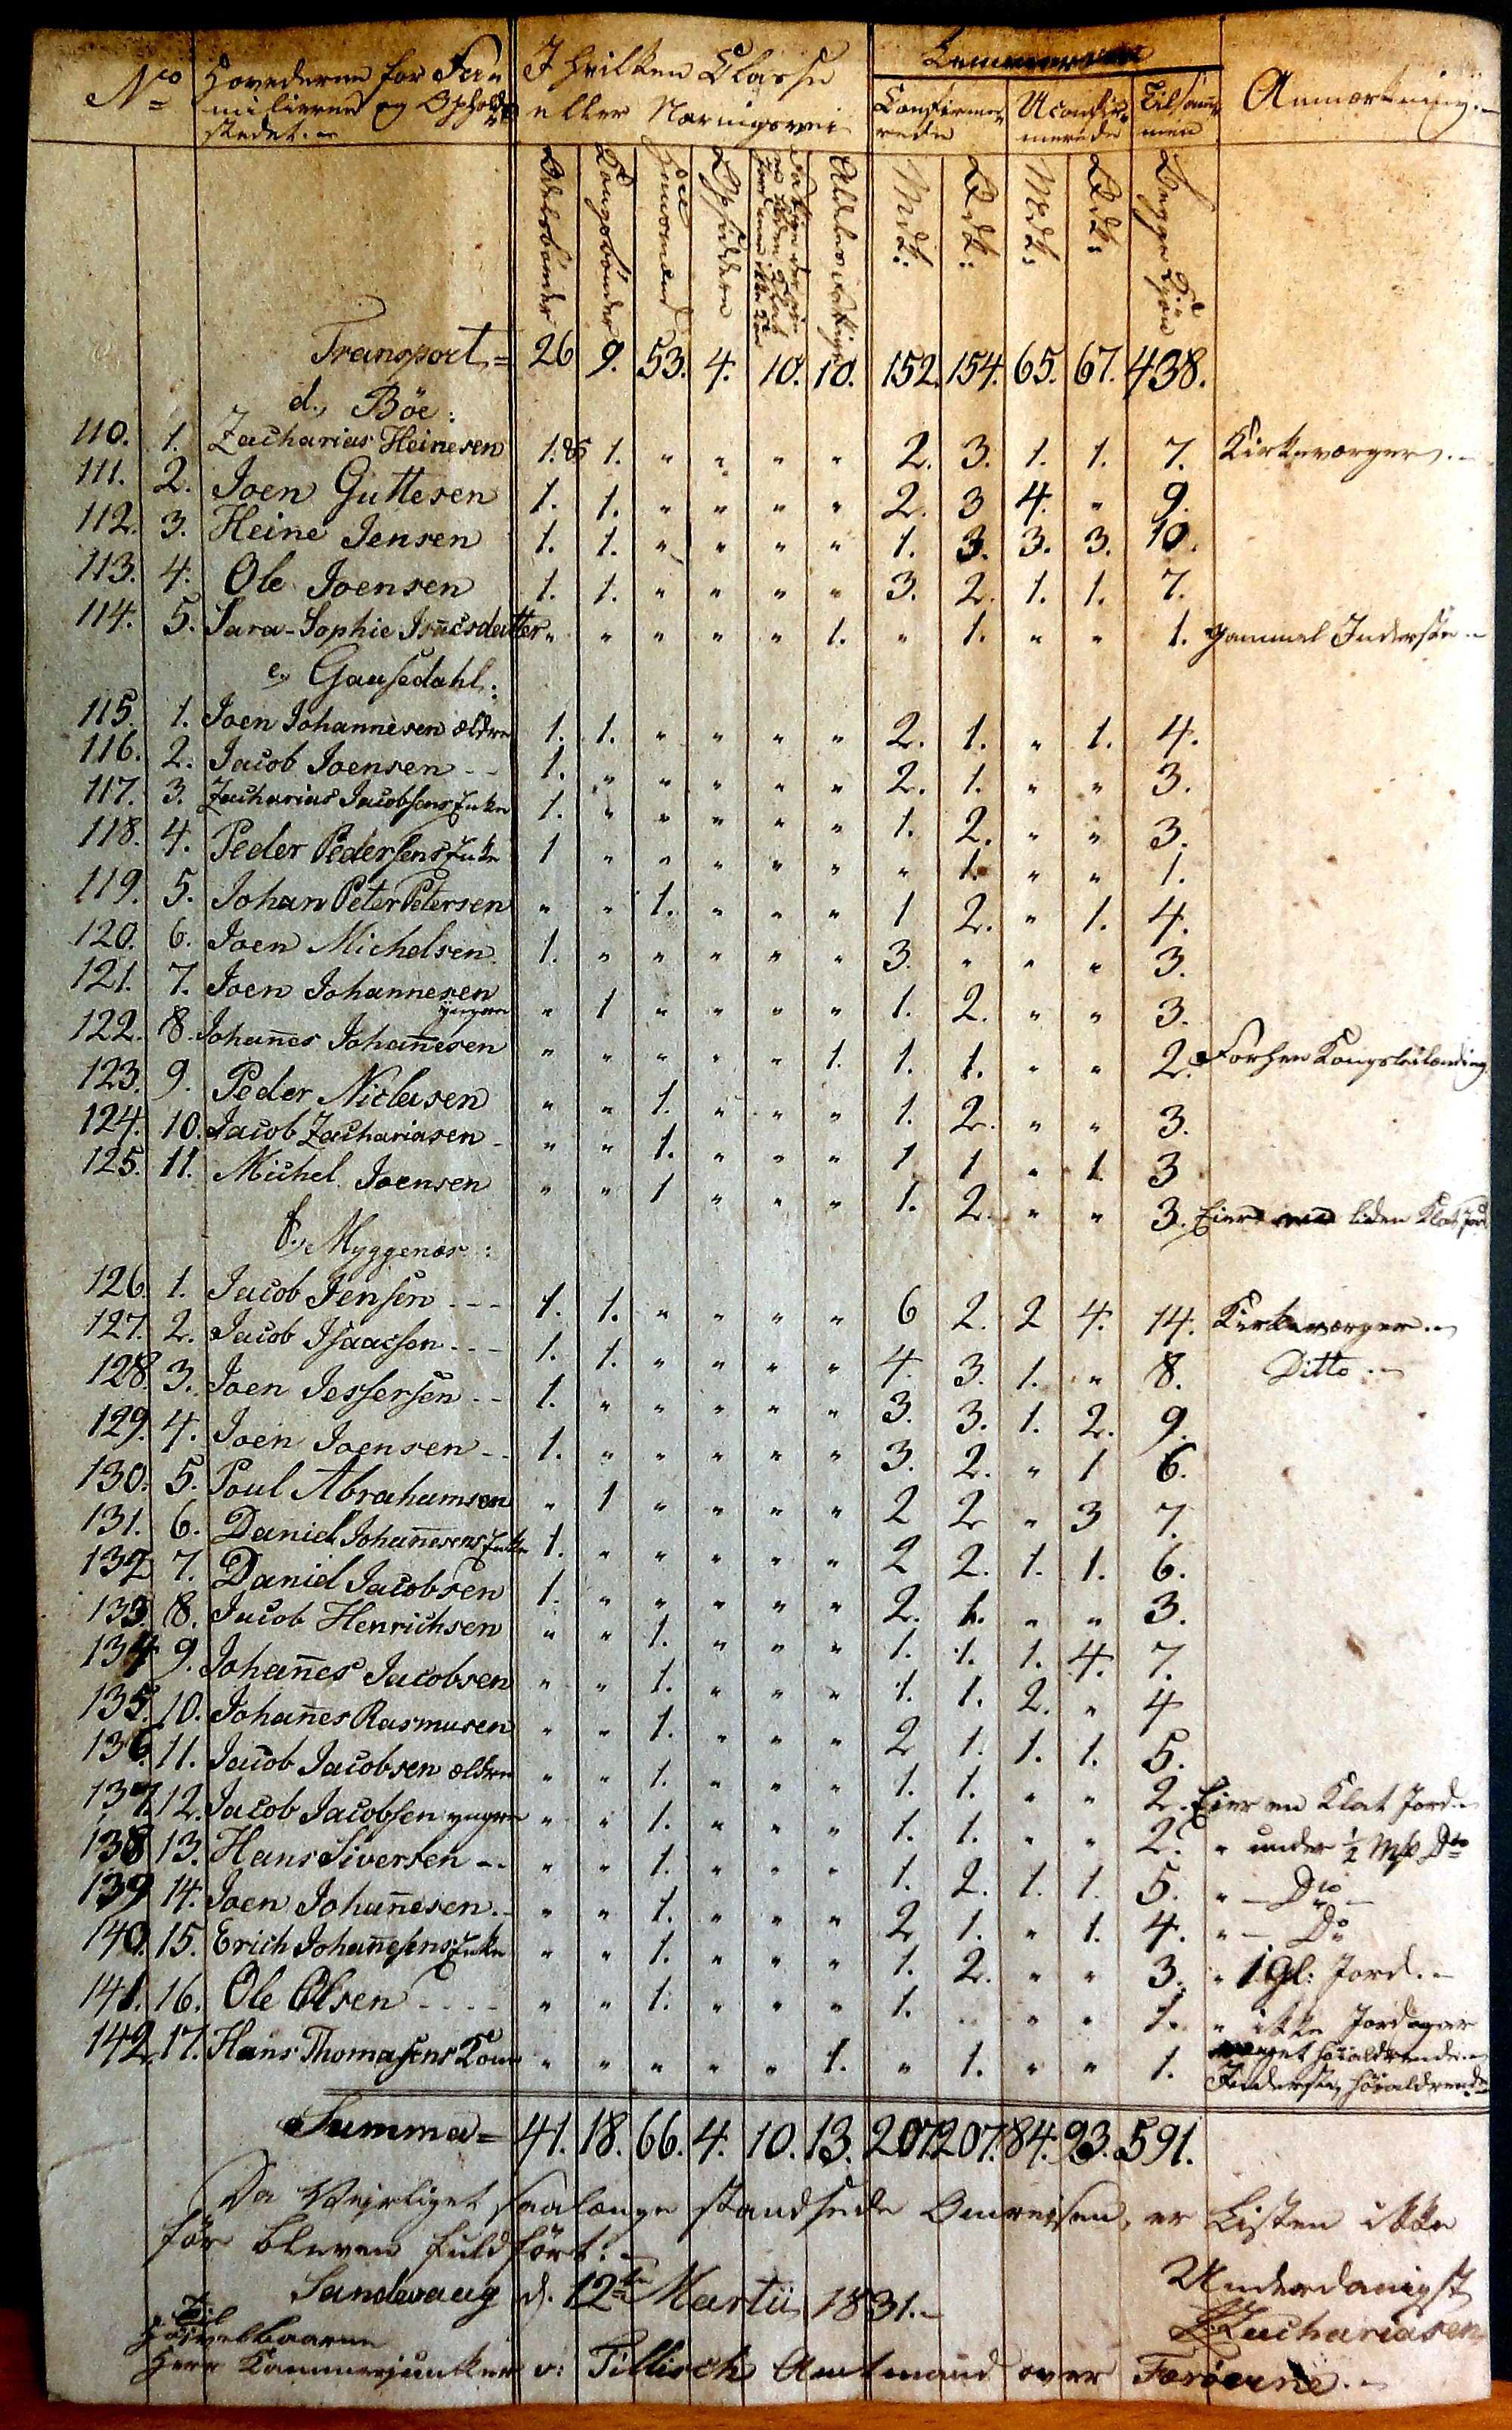 No Hovederne for Fa= I hvilken Classe Anmærkning.
milierne og Opholds eller Næringsvei Confirme= Uconfir= Tilsam=
stedet. rede merede men
Odelsbönder Kongsbönder Huusmænd Opsiddere Mdk: Qdk: Mdk: Qdk: Begge Kjön
Transport= 26 9. 53. 4. 10. 10. 152. 154. 65. 67. 438.
d., Böe:
110. 1. Zacharias Heinesen 1. & 1. " " " " 2. 3. 1. 1. 7. Kirkeværger.
111. 2. Joen Guttesen 1. 1. " " " " 2. 3 4. " 9.
112. 3. Heine Jensen 1. 1. " " " " 1. 3. 3. 3. 10.
113. 4. Ole Joensen 1. 1. " " " " 3. 2. 1. 1. 7.
114. 5. Sara-Sophie Isacsdatter " " " " " 1. " 1. " " 1. gammel Inderste
e., Gaasedahl:
115. 1. Joen Johannesen ældre 1. 1. " " " " 2. 1. " 1. 4.
116. 2. Jacob Joensen -- 1. " " " " " 2. 1. " " 3.
117. 3. Zacharias Jacobsens Enke 1. " " " " " 1. 2. " " 3.
118. 4. Peder Pedersens Enke 1 " " " " " " 1. " " 1.
119. 5. Johan Peter Petersen " " 1. " " " 1 2. " 1. 4.
120. 6. Joen Michelsen. 1. " " " " " 3. " " " 3.
121. 7. Joen Johannesen yngre " 1 " " " " 1. 2. " " 3.
122. 8. Johan̄es Johan̄esen " " " " " 1. 1. 1. " " 2. Forhen Kongsleilænding.
123. 9. Peder Niclasen " " 1. " " " 1. 2. " " 3.
124. 10. Jacob Zachariasen - " " 1. " " " 1 1 " 1. 3
125. 11. Michel Joensen " " 1 " " " 1. 2. " " 3. Eier liden Klat Jord
f., Myggenæs:
126. 1. Jacob Jensen --- 1. 1. " " " " 6 2. 2 4. 14. Kirkeværger.
127. 2. Jacob Isaacsen --- 1. 1. " " " " 4. 3. 1. " 8. Ditto.
128. 3. Joen Jessersen -- 1. " " " " " 3. 3. 1. 2. 9.
129. 4. Joen Joensen -- 1. " " " " " 3. 2. " 1 6.
130. 5. Poul Abrahamsen " 1 " " " " 2 2 " 3 7.
131. 6. Daniel Johan̄esens Enke 1. " " " " " 2 2. 1. 1. 6.
132 7. Daniel Jacobsen 1. " " " " " 2. 1. " " 3.
133. 8. Jacob Henrichsen " " 1. " " " 1. 1. 1. 4. 7.
134 9. Johan̄es Jacobsen " " 1. " " " 1. 1. 2. " 4
135. 10. Johan̄es Rasmusen " " 1. " " " 2 1. 1. 1. 5.
136. 11. Jacob Jacobsen ældre " " 1. " " " 1. 1. " " 2. Eier en Klat Jord.
137. 12. Jacob Jacobsen yngre " " 1. " " " 1. 1. " " 2. " under ½ Mk Dto
138 13. Hans Siversen -- " " 1. " " " 1. 2. 1. 1. 5. " - Dto -
139 14. Joen Johan̄esen. - " " 1. " " " 2 1. " 1. 4. " - Do
140. 15. Erich Johan̄esens Enke " " 1. " " " 1. 2. " " 3. " 1 Gl: Jord.
141. 16. Ole Olsen ---- " " 1. " " " 1. " " 1. " ikke Jord
meget höialdrende
142. 17. Hans Thomasens Kone " " " " " 1. " 1. " " 1. Inderste, höialdrende
Summa= 41. 18. 66. 4. 10. 13. 207. 207. 84. 93. 591.
Da Veirliget saalænge standsede Omreisen, er Listen ikke
för bleven fuldfört.
Sandevaag d. 12te Martii 1831. Underdanigst
Zachariasen
Til
Höivelbaarne
Herr Kammerjunker v: Tillisch Amtmand over Færöerne.